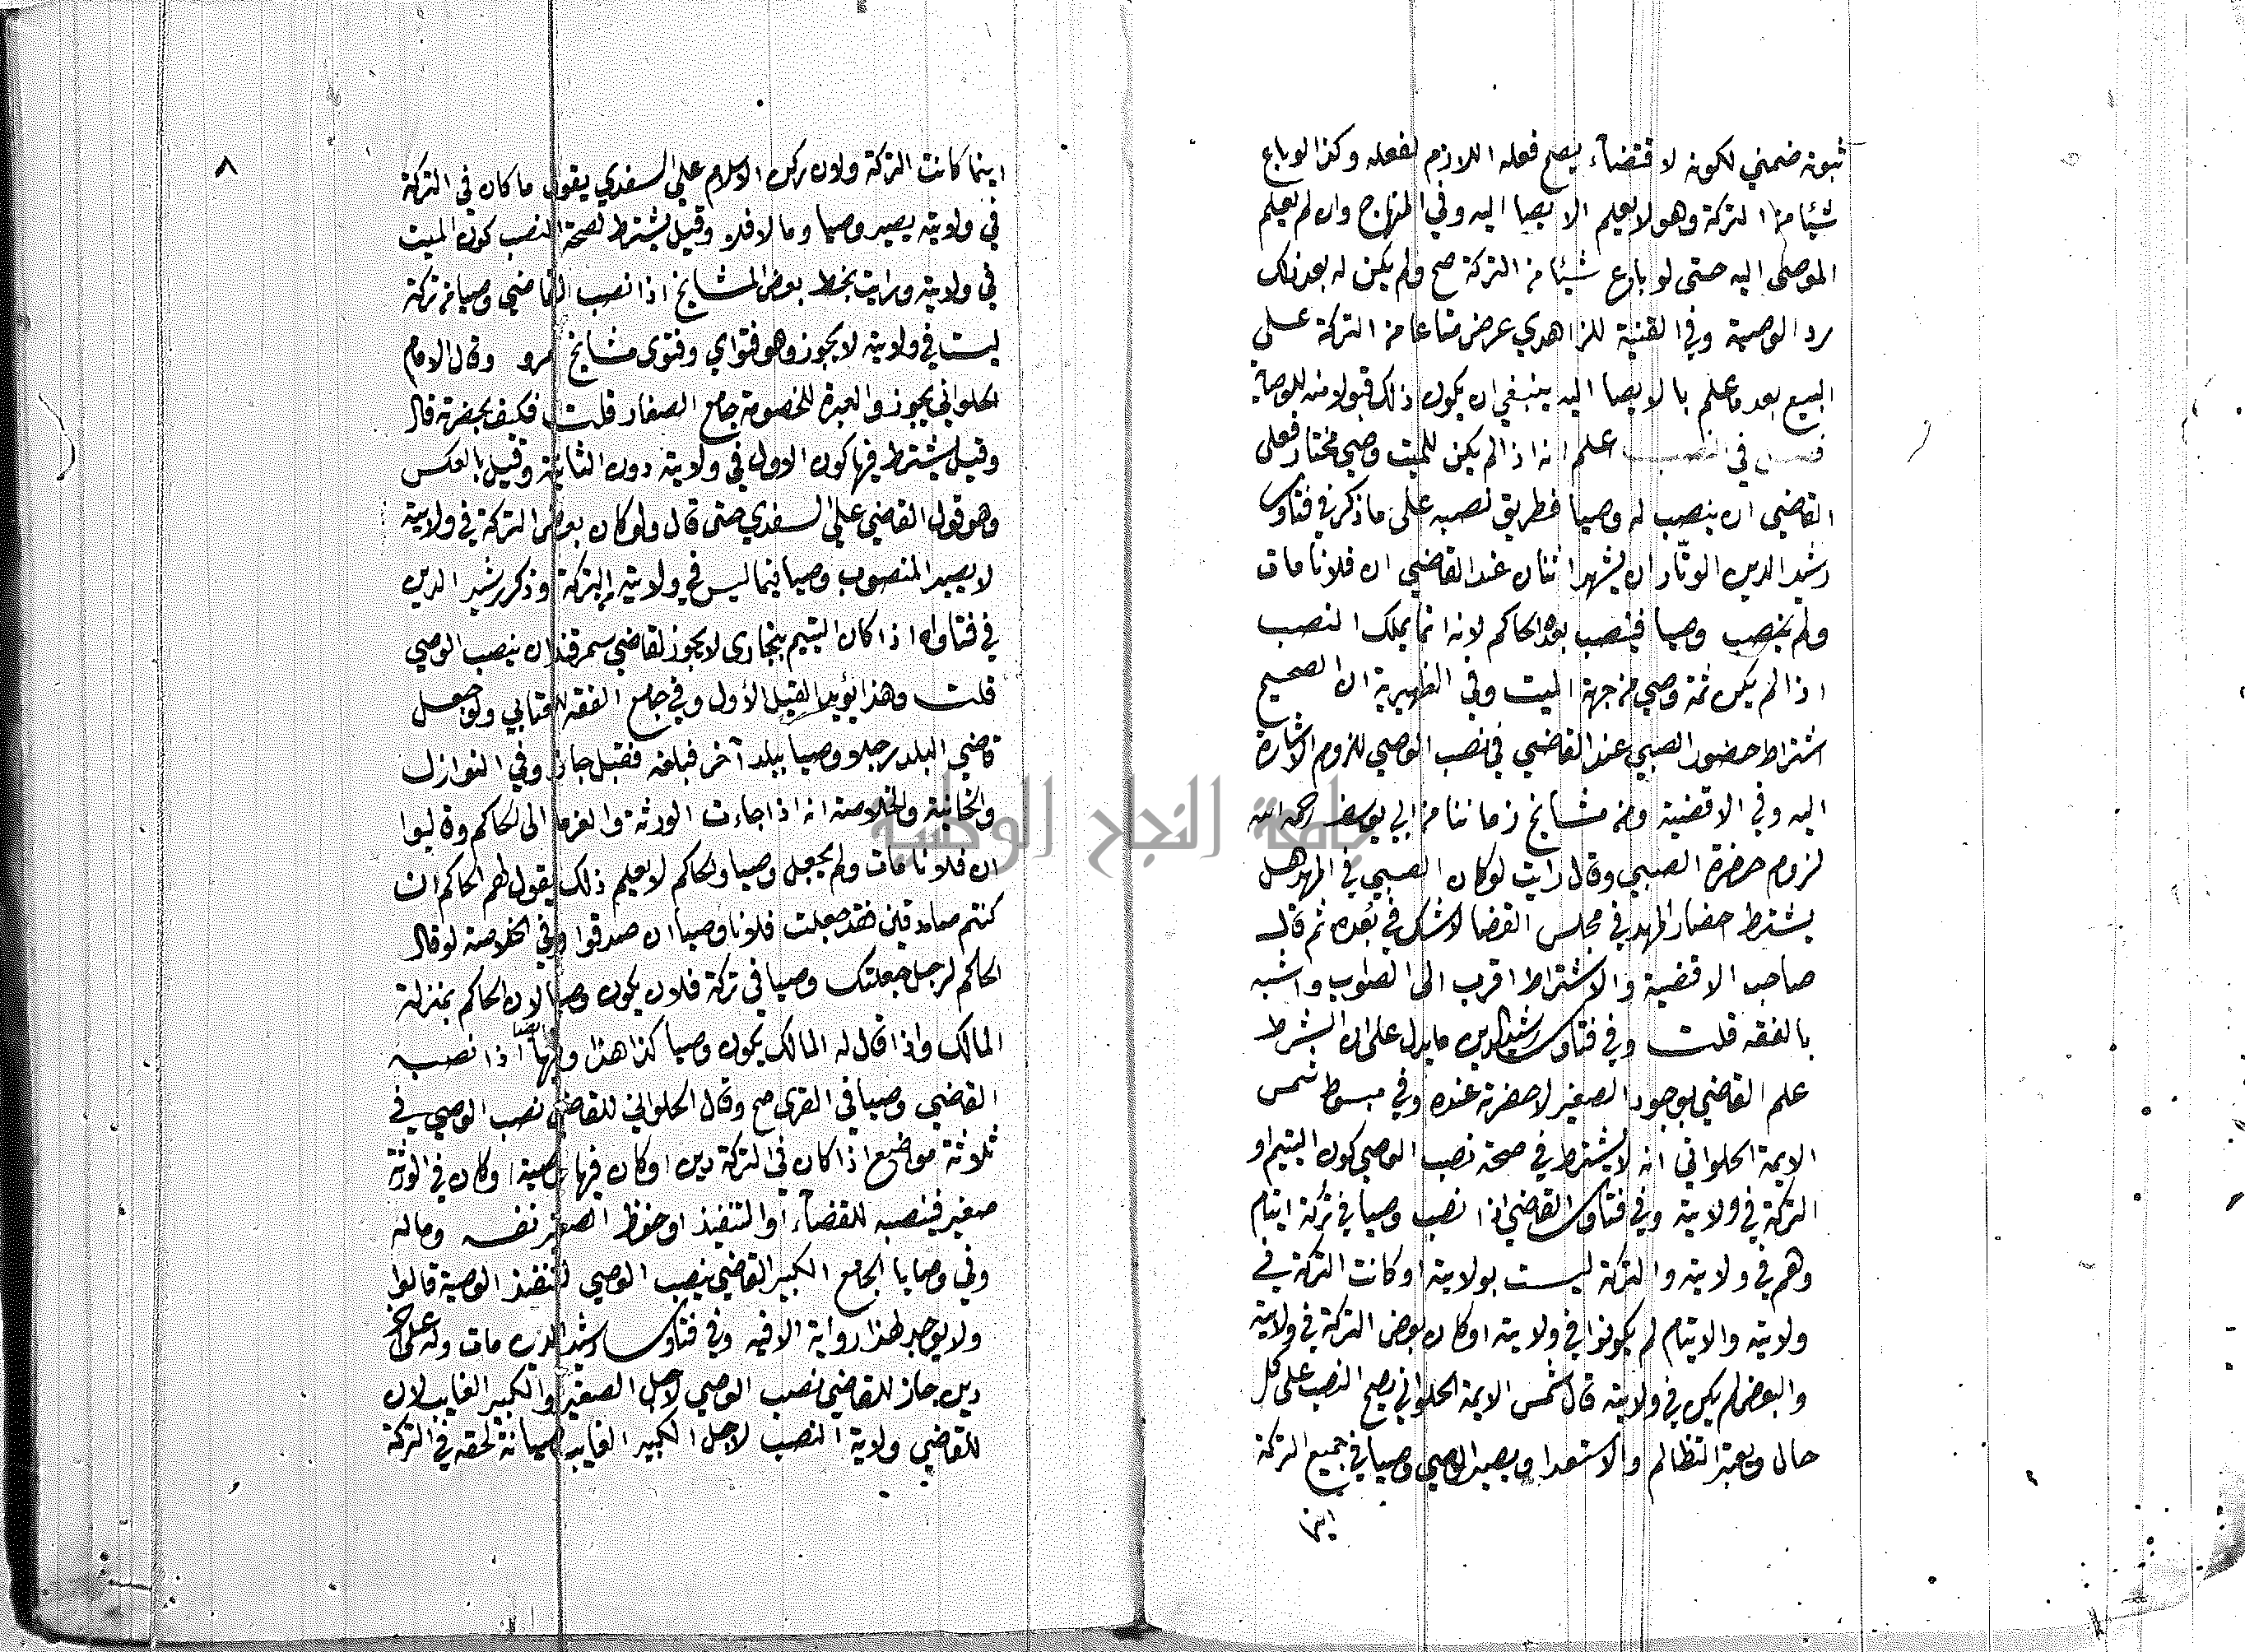 ثبوته ضمني لكونه لاقتضآء يصح فعله اللازم لفعله وكذا لو باع
شيئا من التركة وهو لا يعلم الايصا اليه وفي المنهاج وان لم يعلم
الموصى اليه حتى لو باع شيئا من التركة صح ولم يكن له بعد ذلك
رد الوصية وفي القنية للزاهدي عرض متاعا من التركة على
البيع بعد ما علم بالايصا اليه ينبغي ان يكون ذلك قبولا منه للوصاية
فصل في النصب اعلم انه اذا لم يكن للميت وصي مختار فعلى
القاضي ان ينصب له وصيا فطريق نصبه على ما ذكر في فتاوى
رشيد الدين الوتار ان يشهد اثنان عند القاضي ان فلانا مات
ولم ينصب وصيا فينصب بعده الحاكم لانه انما يملك النصب
اذا لم يكن ثمة وصي من جهة الميت وفي الظهيرية ان الصحيح
اشتراط حضور الصبي عند القاضي في نصب الوصي للزوم الاشارة
اليه وفي الاقضية ومن مشايخ زماننا من ابي يوسف رحمه الله
لزوم حضرة الصبي وقال رايت لو كان الصبي في المهد هل
يشترط احضار المهد في مجلس القضا لا شك في بعده ثم قال
صاحب الاقضية والاشتراط اقرب الى الصواب واشبه
بالفقه قلت وفي فتاوى رشيد الدين ما يدل على ان الشرط
علم القاضي بوجود الصغير لا حضرته عنده وفي مبسوط شمس
الايمة الحلواني انه لا يشترط في صحة نصب الوصي كون اليتيم او
التركة في ولايته وفي فتاوى القاضي اذا نصب وصيا في تركة ايتام
وهم في ولايته والتركة ليست بولايته او كانت التركة في
ولايته والايتام لم يكونوا في ولايته او كان بعض التركة في ولايته
والبعض لم يكن في ولايته قال شمس الايمة الحلواني يصح النصب على كل
حال ويعتبر التظالم والاستعدا ويصير الوصي وصيا في جميع التركة
اينما
٨
اينما كانت التركة وكان ركن الاسلام علي السغدي يقول ما كان في التركة
في ولايته يصير وصيا وما لا فلا وقيل يشترط لصحة النصب كون الميت
في ولايته ورايت بخط بعض المشايخ اذا نصب القاضي وصيا من تركة
ليست في ولايته لا يجوز وهو فتواي وفتوى مشايخ مرو وقال الامام
الحلواني يجوز والعبرة للخصومة جامع الصغار قلت فكيف بحضرته قال
وقيل يشترط فيها كون الاول في ولايته دون الثانية وقيل بالعكس
وهو قول القاضي علي السغدي حتى قال ولو كان بعض التركة في ولايته
لا يصير المنصوب وصيا فيما ليس في ولايته من التركة وذكر رشيد الدين
في فتاواه اذا كان اليتيم ببخارى لا يجوز لقاضي سمرقند ان ينصب الوصي
قلت وهذا يؤيد القيل الأول وفي جامع الفقه للعتابي ولو جعل
قاضي البلد رجلا وصيا ببلد آخر فبلغه فقبل جاز وفي النوازل
والخانية والخلاصة انه اذا جاءت الورثة والغرما الى الحاكم وقالوا
ان فلانا مات ولم يجعل وصيا والحاكم لا يعلم ذلك يقول لهم الحاكم ان
كنتم صادقين فقد جعلت فلانا وصيا ان صدقوا وفي الخلاصة لو قال
الحاكم لرجل جعلتك وصيا في تركة فلان يكون وصيا لان الحاكم بمنزلة
المالك واذا قال له المالك يكون وصيا كذا هذا وفيها ايضا اذا نصب
القاضي وصيا في القرى صح وقال الحلواني للقاضي نصب الوصي في
ثلاثة مواضع اذا كان في التركة دين او كان فيها وصية او كان في الورثة
صغير فينصبه للقضآء او التنفيذ او حفظ الصغير نفسه وماله
وفي وصايا الجامع الكبير القاضي ينصب الوصي لتنفيذ الوصية قالوا
ولا يوجد لهذا رواية الا فيه وفي فتاوى رشيد الدين مات وله على آخر
دين جاز للقاضي نصب الوصي لأجل الصغير والكبير الغايب لان
للقاضي ولاية النصب لاجل الكبير الغايب صيانة لحقه في التركة
جامعة النجاح الوطنية